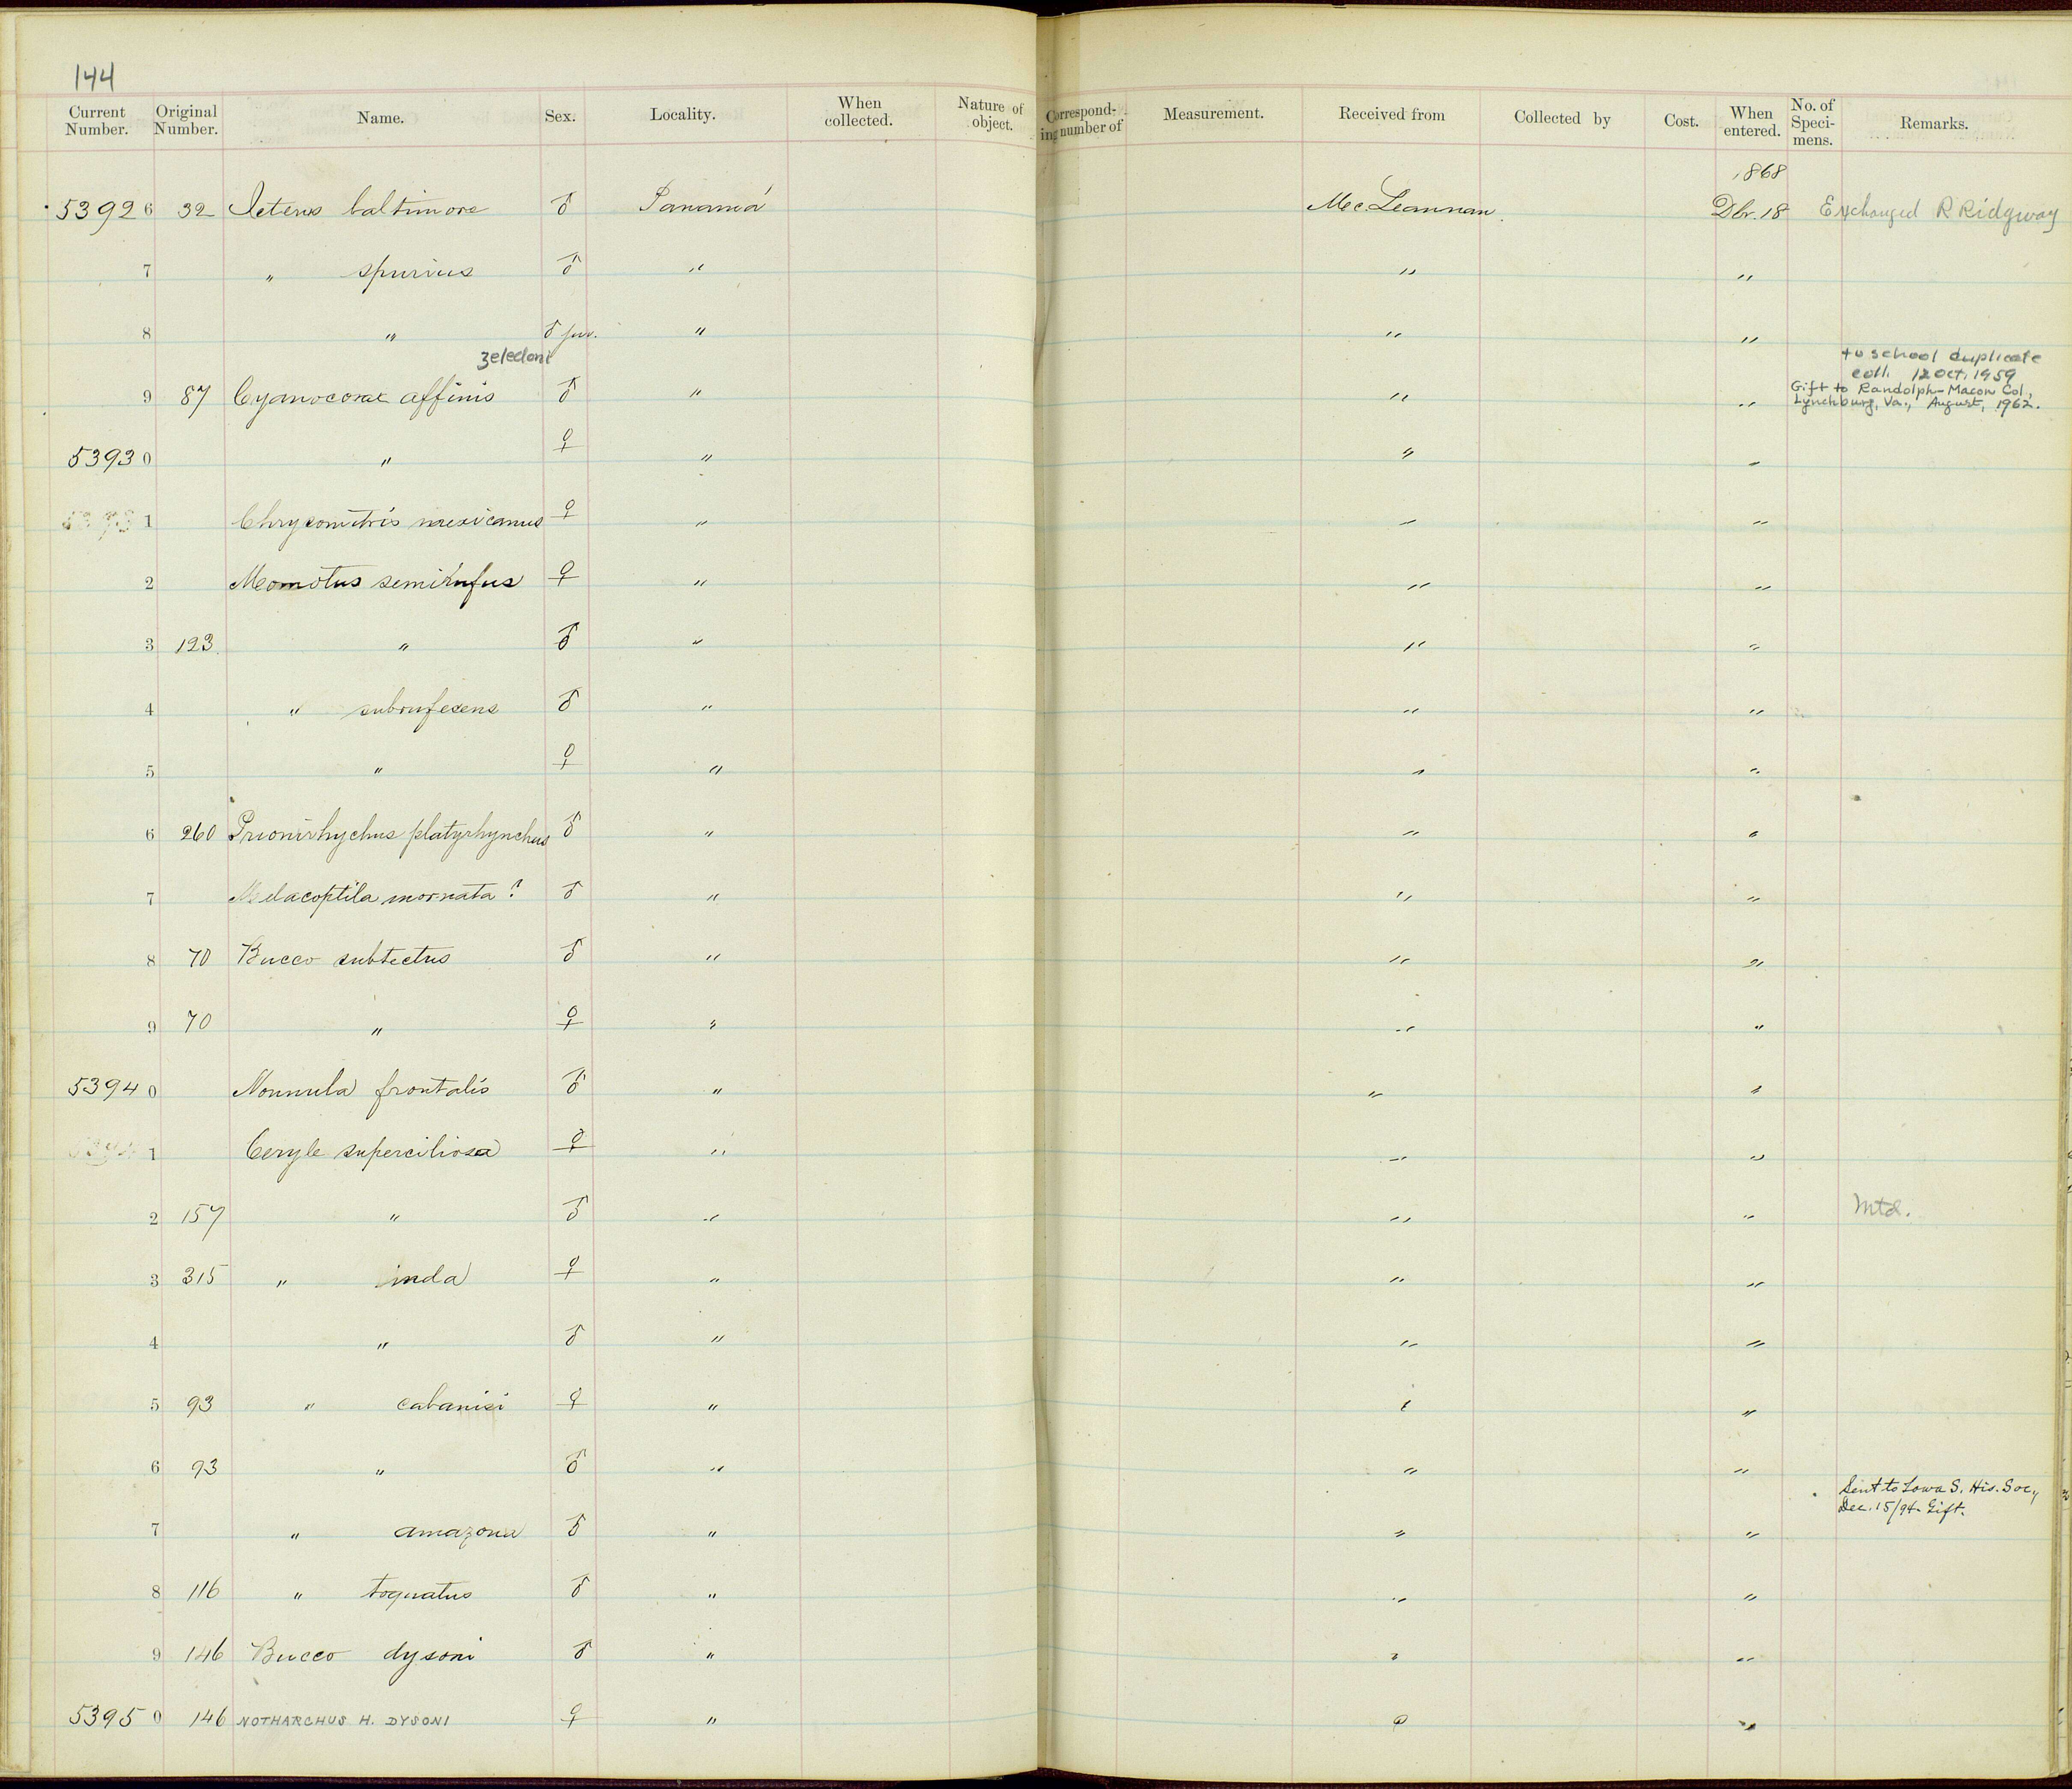 144
Current Number. Original Number. Name. Sex. Locality. When collected. Nature of object. Correspond- ing number of Measurement. Received from Collected by Cost. When entered. No. of Speci- mens. Remarks.
1868
53926 32 Icterus baltimore ♂ Panamá McLeannan Dbr. 18 Exchanged R Ridgway
7 " spurius ♂ " " "
8 " ♂ juv. " " "
zeledoni
to school duplicate
coll. 12 Oct, 1959
9 87 Cyanocorax affinis ♂ " " " Gift to Randolph-Macon Col.,
Lynchburg, Va., August, 1962.
53930 " ♀ " " "
1 Chrysomitris mexicanus ♀ " " "
2 Momotus semirufus ♀ " " "
3 123 " ♂ " " "
4 " subrufescens ♂ " " "
5 " ♀ " " "
6 260 Prionirhychus platyrhynchus ♂ " " "
7 Malacoptila inornata? ♂ " " "
8 70 Bucco subtectus ♂ " " "
9 70 " ♀ " " "
53940 Nonnula frontalis ♂ " " "
1 Ceryle superciliosa ♀ " " "
2 157 " ♂ " " " Mtd.
3 315 " inda ♀ " " "
4 " ♂ " " "
5 93 " cabanisi ♀ " " "
6 93 " ♂ " " "
Sent to Iowa S. His. Soc.,
Dec. 15/94. Gift.
7 " amazona ♂ " " "
8 116 " toquatus ♂ " " "
9 146 Bucco dysoni ♂ " " "
53950 146 NOTHARCHUS H. DYSONI ♀ " " "